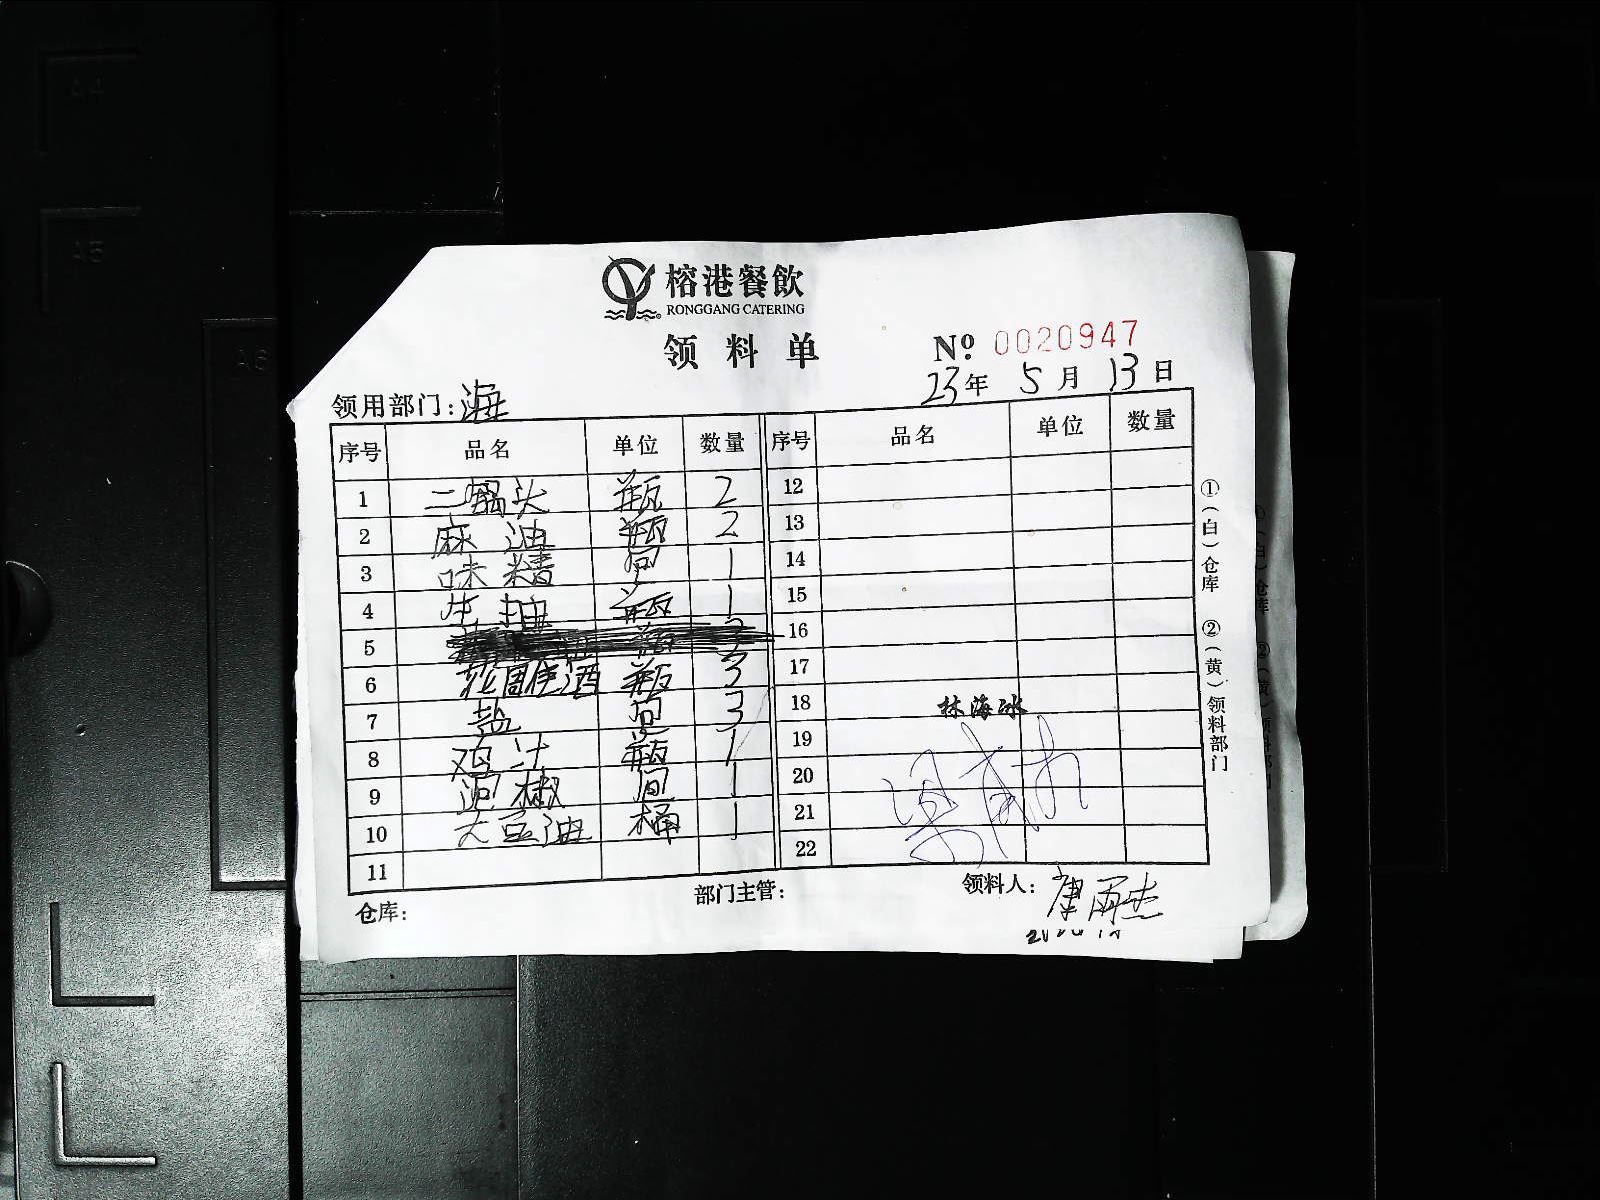 榕港餐飲
RONGGANG CATERING
领料单
№ 0020947
23年 5月 13日
领用部门:海
序号 品名 单位 数量 序号 品名 单位 数量
1 二锅头 瓶 2 12
2 麻油 瓶 2 13
3 味精 包 1 14
4 生抽 瓶 1 15
5 16
6 花雕酒 瓶 3 17
7 盐 包 3 18
8 鸡汁 瓶 1 19
9 泡椒 包 1 20
10 大豆油 桶 1 21
11 22
林海冰
仓库: 部门主管: 领料人:
①(白)仓库 ②(黄)领料部门
A4
A5
A6